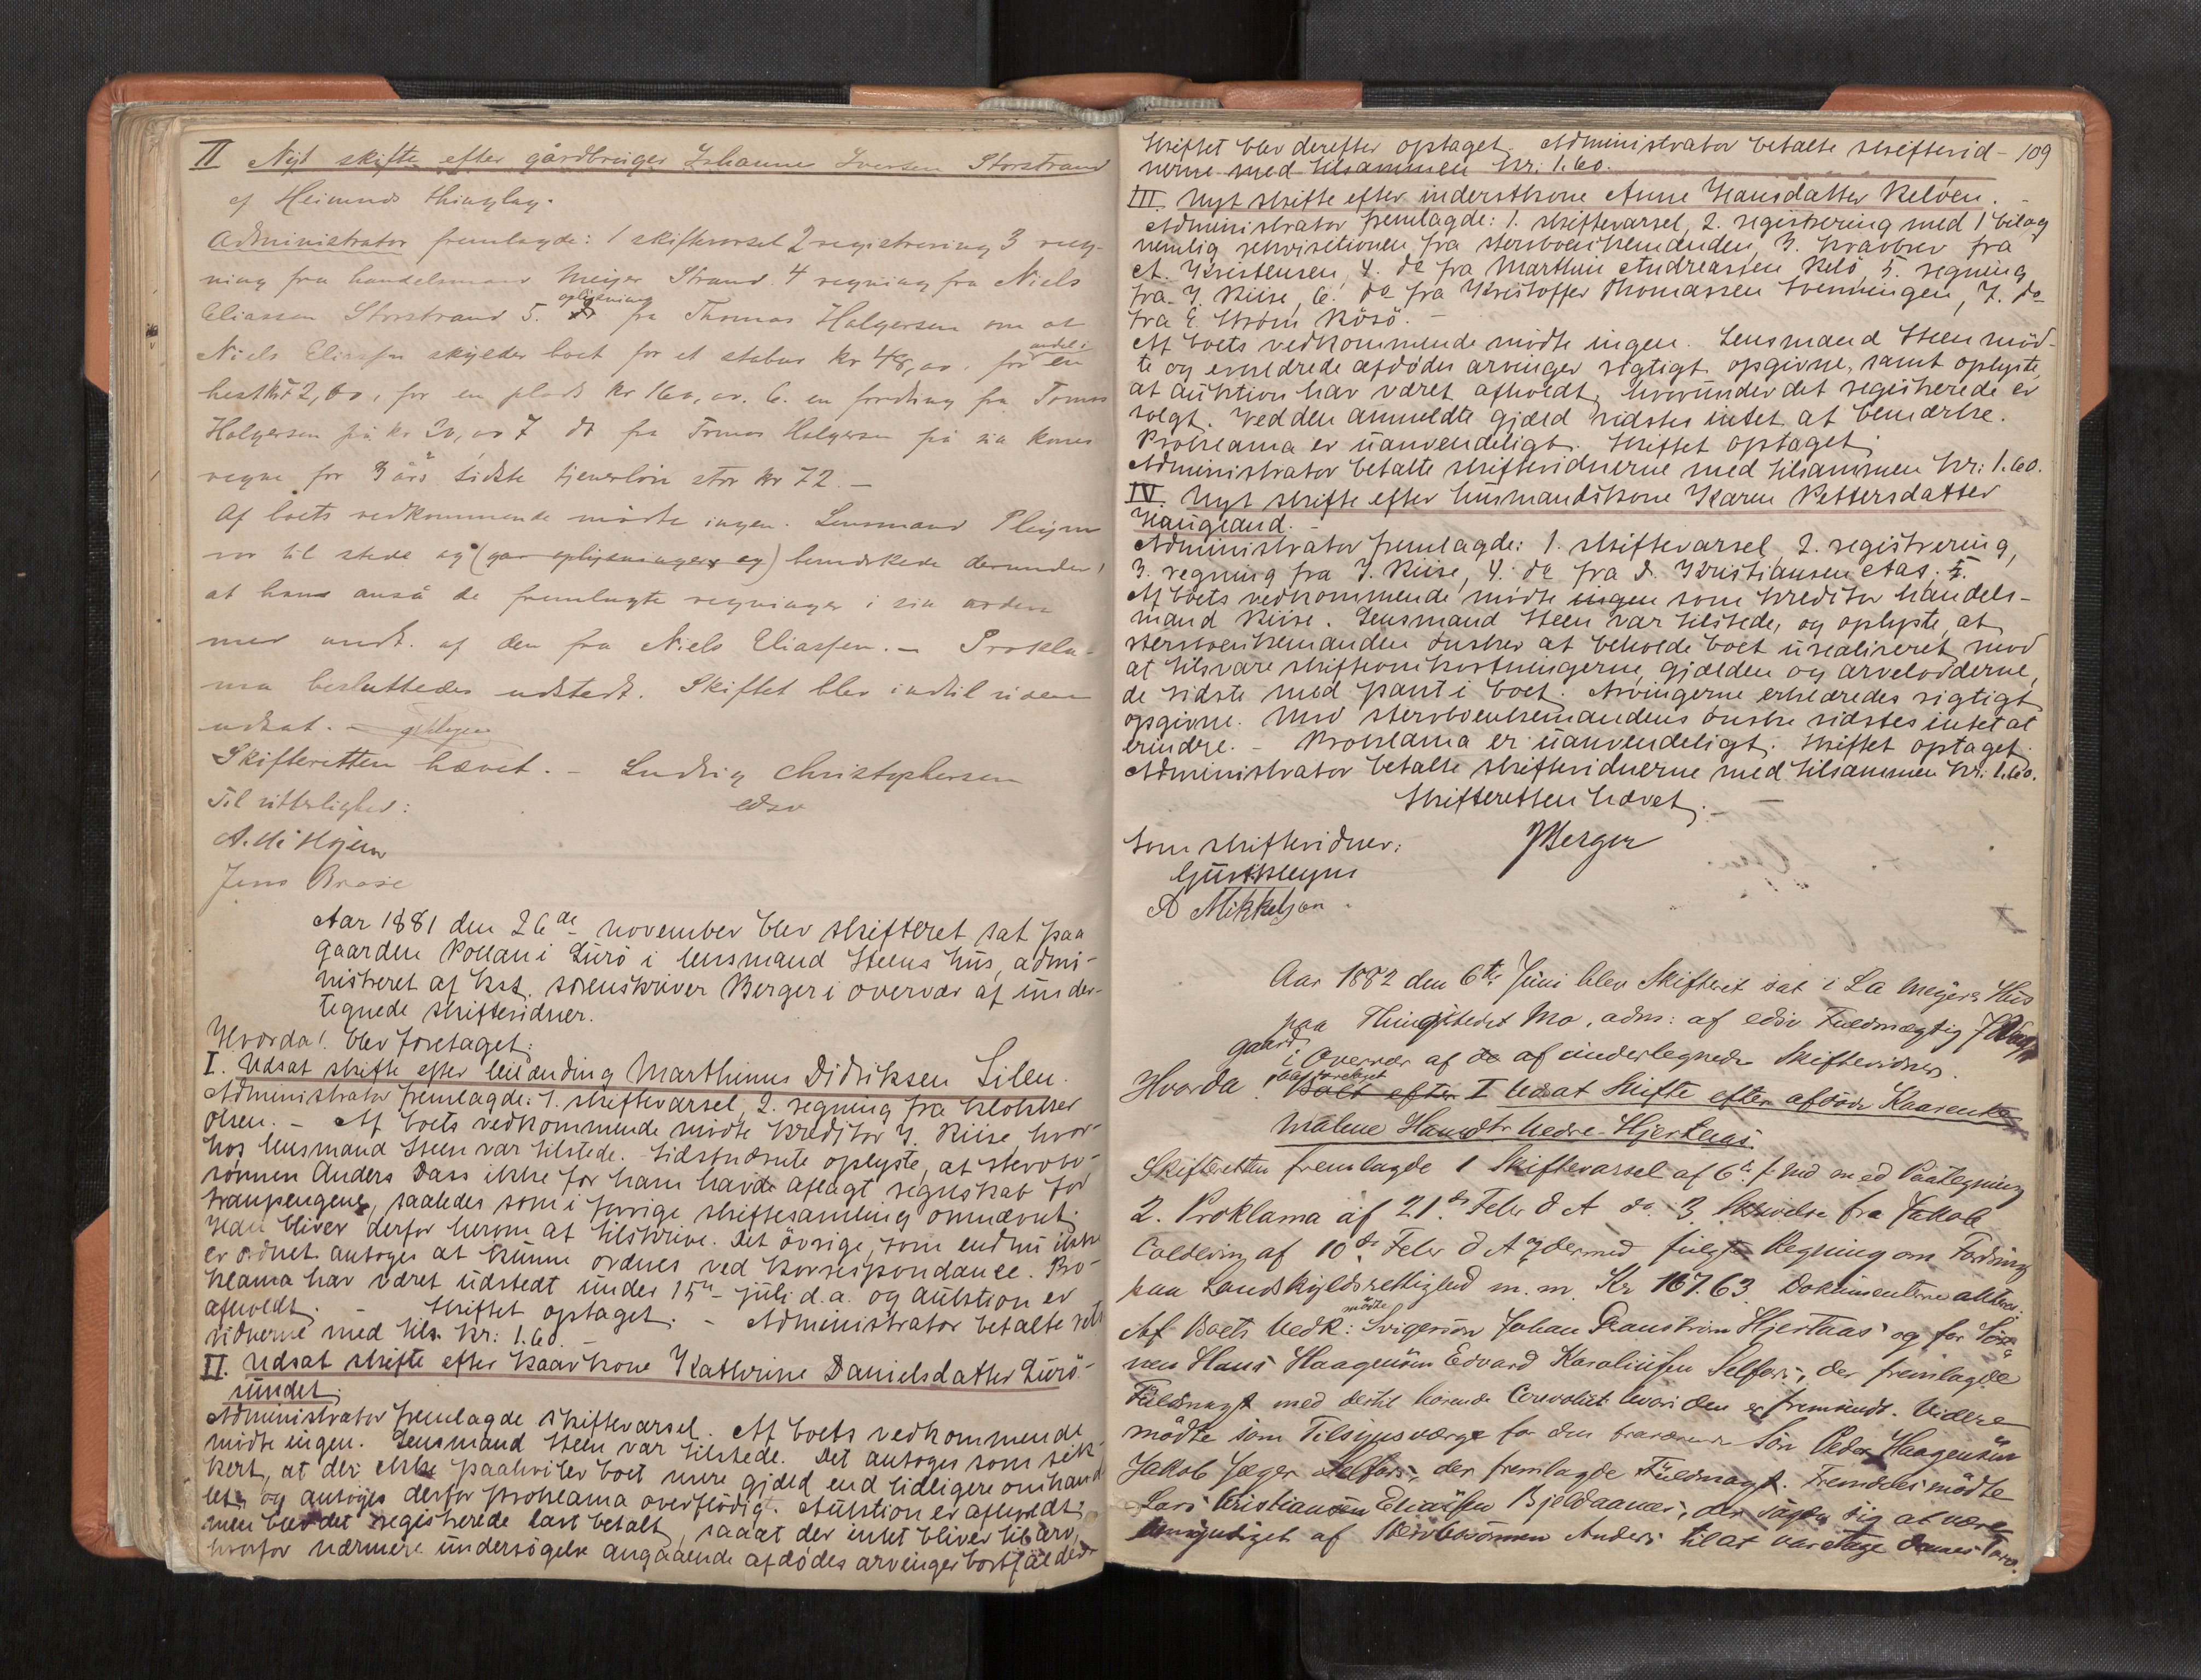 II Nyt skifte efter gårdbruiger Johannes Iversen Storstrand
af Heimnes thinglag.
Administrator fremlagde: 1 skiftevarsel 2 registrering 3 reg-
ning fra handelsmand Meyer Strand. 4 regning fra Niels
Eliassen Storstrand 5. oplysning fra Thomas Holgersen om at
Niels Eliassen skylder boet for et stabur kr 48,00, for andel i en
hest kr 2,60, for en plads kr 160,00. 6. en fordring fra Tomas
Holgersen på kr 20,00 7 do fra Tomas Holgersen på sin kones
vegne for 3 års sidste tjenerlön stor kr 72 –
Af boets vedkommende mödte ingen. Lensmand Pleym
var til stede og (gav oplysninger og) bemærkede derunder,
at han anså de fremlagte regninger i sin orden
med undt. af den fra Niels Eliassen. – Prokla-
ma besluttedes udstedt. Skiftet blev indtil videre
udsat. –
Skifteretten hævet. – Ludvig Christophersen
Til vitterlighed: edsv
A. M. Hjem
Jens Brase
Aar 1881 den 26de november blev skifteret sat paa
gaarden Kollan i Lurö i lensmand Steens hus, admi-
nistreret af kst. sorenskriver Berger i overvær af under-
tegnede skiftevidner.
Hvorda! blev foretaget:
I. Udsat skifte efter leilænding Marthinus Didriksen Silen.
Administrator fremlagde: 1. skiftevarsel, 2. regning fra klokker
Olsen. – Af boets vedkommende mödte kreditor J. Riise, hvor-
hos lensmand Steen var tilstede. Sidstnævnte oplyste, at stervbo-
sönnen Anders Dass ikke for ham havde aflagt regnskab for
tranpengene, saaledes som i forrige skiftesamling omnævnt.
Han bliver derfor herom at tilskrive. Det övrige, som endnu ikke
er ordnet antoges at kunne ordnes ved korrespondance. Pro-
klama har været udstedt under 15de juli d.a. og auktion er
afholdt. – Skiftet optaget. – Administrator betalte skifte-
vidnerne med tils. kr: 1.60.
II. Udsat skifte efter kaarkone Kathrine Danielsdatter Lurö-
sundet.
Administrator fremlagde skiftevarsel. Af boets vedkommende
mödte ingen. Lensmand Steen var tilstede. Det antoges som sik-
kert, at der ikke paahviler boet mere gjæld end tidligere omhand-
let, og antoges derfor proklama overflödig. Auktion er afholdt;
men blev det registrerede lavt betalt, saaat der intet bliver til arv,
hvorfor nærmere undersögelse angaaende afdödes arvinger bortfalder.
109
Skiftet blev derefter optaget. Administrator betalte skiftevid-
nerne med tilsammen kr: 1.60.
III. Nyt skifte efter inderstkone Anne Hansdatter Kelöen.
Administrator fremlagde: 1. skiftevarsel, 2. registrering med 1 bilag
nemlig rekvisitionen fra stervboenkemanden, 3. kravbrev fra
A. Kristensen, 4. do fra Marthin Andreassen Kelö, 5. regning
fra J. Riise, 6. do fra Kristoffer Thomassen Svenningen, 7. do
fra E. Ström Rösö. –
Af boets vedkommende mödte ingen. Lensmand Steen möd-
te og erklærede afdödes arvinger rigtigt opgivne, samt oplyste,
at auktion har været afholdt, hvorunder det registrerede er
solgt. Ved den anmeldte gjæld vidstes intet at bemærke.
Proklama er uanvendeligt. Skiftet optaget.
Administrator betalte skiftevidnerne med tilsammen kr: 1.60.
IV. Nyt skifte efter husmandskone Karen Pettersdatter
Haugland. –
Administrator fremlagde: 1. skiftevarsel, 2. registrering,
3. regning fra J. Riise, 4. do fra D. Kristiansen Aas. 5.
Af boets vedkommende mödte ingen som kreditor handels-
mand Riise. Lensmand Steen var tilstede, og oplyste, at
stervboenkemanden önsker at beholde boet urealiseret mod
at tilsvare skifteomkostningerne, gjælden og arvelodderne,
de sidste med pant i boet. Arvingerne erklæredes rigtigt
opgivne. Mod stervboenkemandens önske vidstes intet at
erindre. – Proklama er uanvendeligt. Skiftet optaget.
Administrator betalte skiftevidnerne med tilsammen kr: 1.60.
Skifteretten hævet.
Som skiftevidner: JBerger
A Mikkelsen.
Aar 1882 den 6te Juni blev Skifteret sat i La Meyers Hus
paa Thingstedet Mo, adm: af edsv Fuldmægtig
gaard i Overvær af de af undertegnede Skiftevidner.
Hvorda! blev foretaget Valt efter I Udsat Skifte efter afdöde Kaarenke
Malene Hansdtr Nedre-Hjertaas.
Skifteretten fremlagde 1 Skiftevarsel af 6te f. Md med Paategning
2. Proklama af 21de Febr d A do 3. Skrivelse fra Jakob
Coldevin af 10de Febr d A og dermed fulgte Regning om Fordring
paa Landskyldsrettighed m. m. Kr 167.63. Dokumenterne
Af Boets Vedk: mödte Svigersön Johan Danström Hjertaas og for Sön-
nen Hans Haagensön Edvard Karoliussen Selfors, der fremlagde
Fuldmagt med dertil hörende Couvolut hvori den er fremsendt. Videre
mödte som Tilsynsværge for den fraværende Sön Peder Haagensön
Jakob Jæger Selfors, der fremlagde Fuldmagt. Fremdeles mödte
Lars Kristiansen Eliassen Bjeldaanes, der sagde sig at være
bemyndiget af Stervbosönnen Anders til at varetage dennes Tarv.